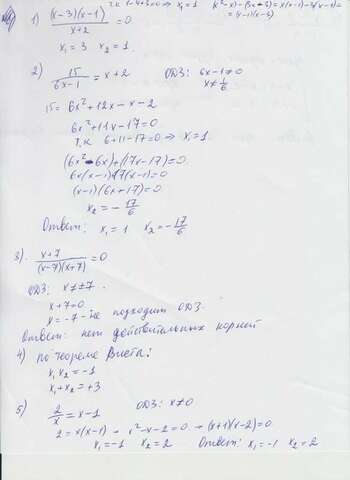 т.к 1-4+3=0 ⇒ x₁=1 (x²-x)-(3x-3)=x(x-1)-3(x-1)=
=(x-1)(x-3)
1) (x-3)(x-1)/(x+2) =0
x₁=3 x₂=1.
2) 15/(6x-1) = x+2 ОДЗ: 6x-1≠0
x≠1/6
15=6x²+12x-x-2
6x²+11x-17=0
т.к 6+11-17=0 ⇒ x₁=1.
(6x²-6x)+(17x-17)=0
6x(x-1)+17(x-1)=0
(x-1)(6x+17)=0
x₂=-17/6
Ответ: x₁=1 x₂=-17/6
3). (x+7)/((x-7)(x+7)) =0
ОДЗ: x≠±7.
x+7=0
x=-7 - не подходит ОДЗ.
Ответ: нет действительных корней
4) по теореме Виета:
x₁x₂=-1
x₁+x₂=+3
5) 2/x=x-1 ОДЗ: x≠0
2=x(x-1) → x²-x-2=0 → (x+1)(x-2)=0
x₁=-1 x₂=2 Ответ: x₁=-1 x₂=2